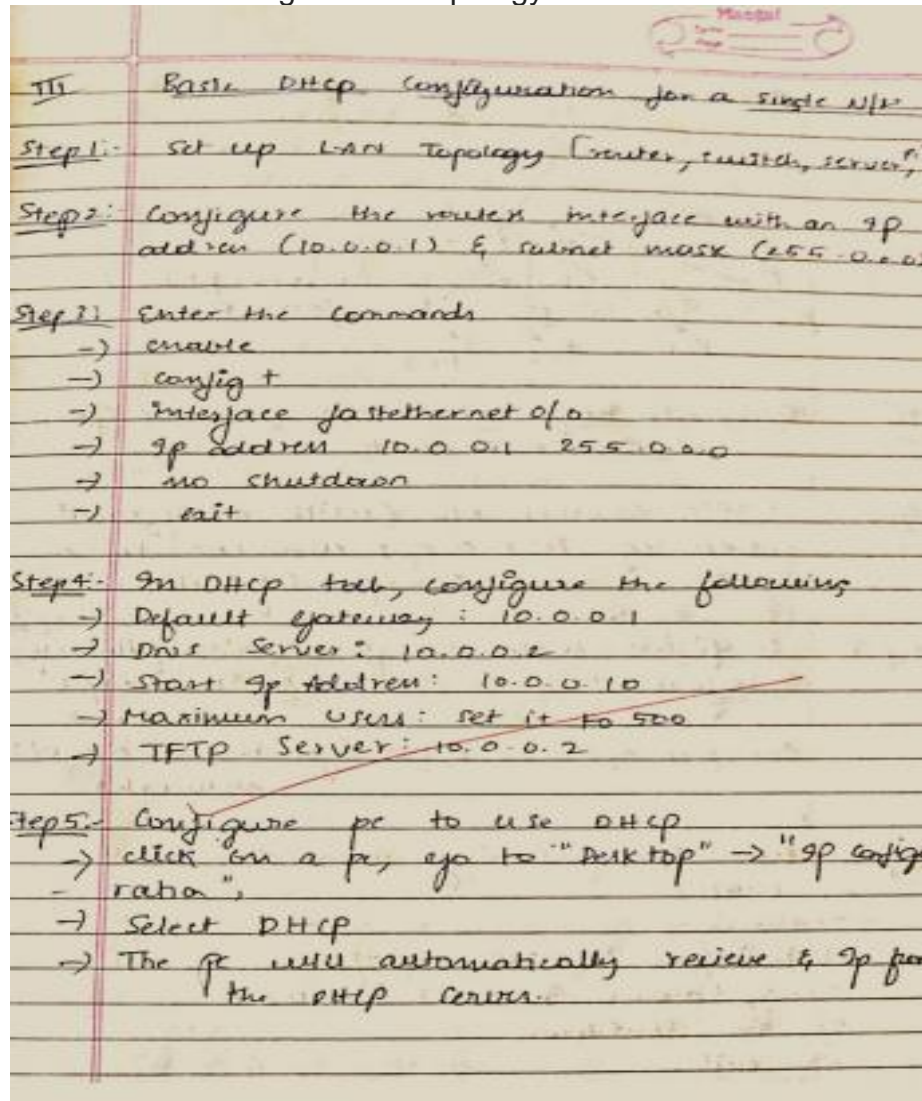 III Basic DHCP Configuration for a single N/W
Step 1:- Set up LAN Topology [router, switch, server,
Step 2: Configure the router interface with an IP
address (10.0.0.1) & subnet mask (255.0.0.0)
Step 3: Enter the commands
-> enable
-> config t
-> interface fastethernet 0/0
-> IP address 10.0.0.1 255.0.0.0
-> no shutdown
-> exit
Step 4:- In DHCP tab, configure the following
-> Default gateway : 10.0.0.1
-> DNS Server : 10.0.0.2
-> Start IP Address: 10.0.0.10
-> Maximum users: set it to 500
-> TFTP Server: 10.0.0.2
tep 5:- Configure pc to use DHCP
-> click on a pc, go to "Desktop" -> "IP config
- ration",
-> Select DHCP
-> The pc will automatically recieve & IP from
the DHCP Servers.